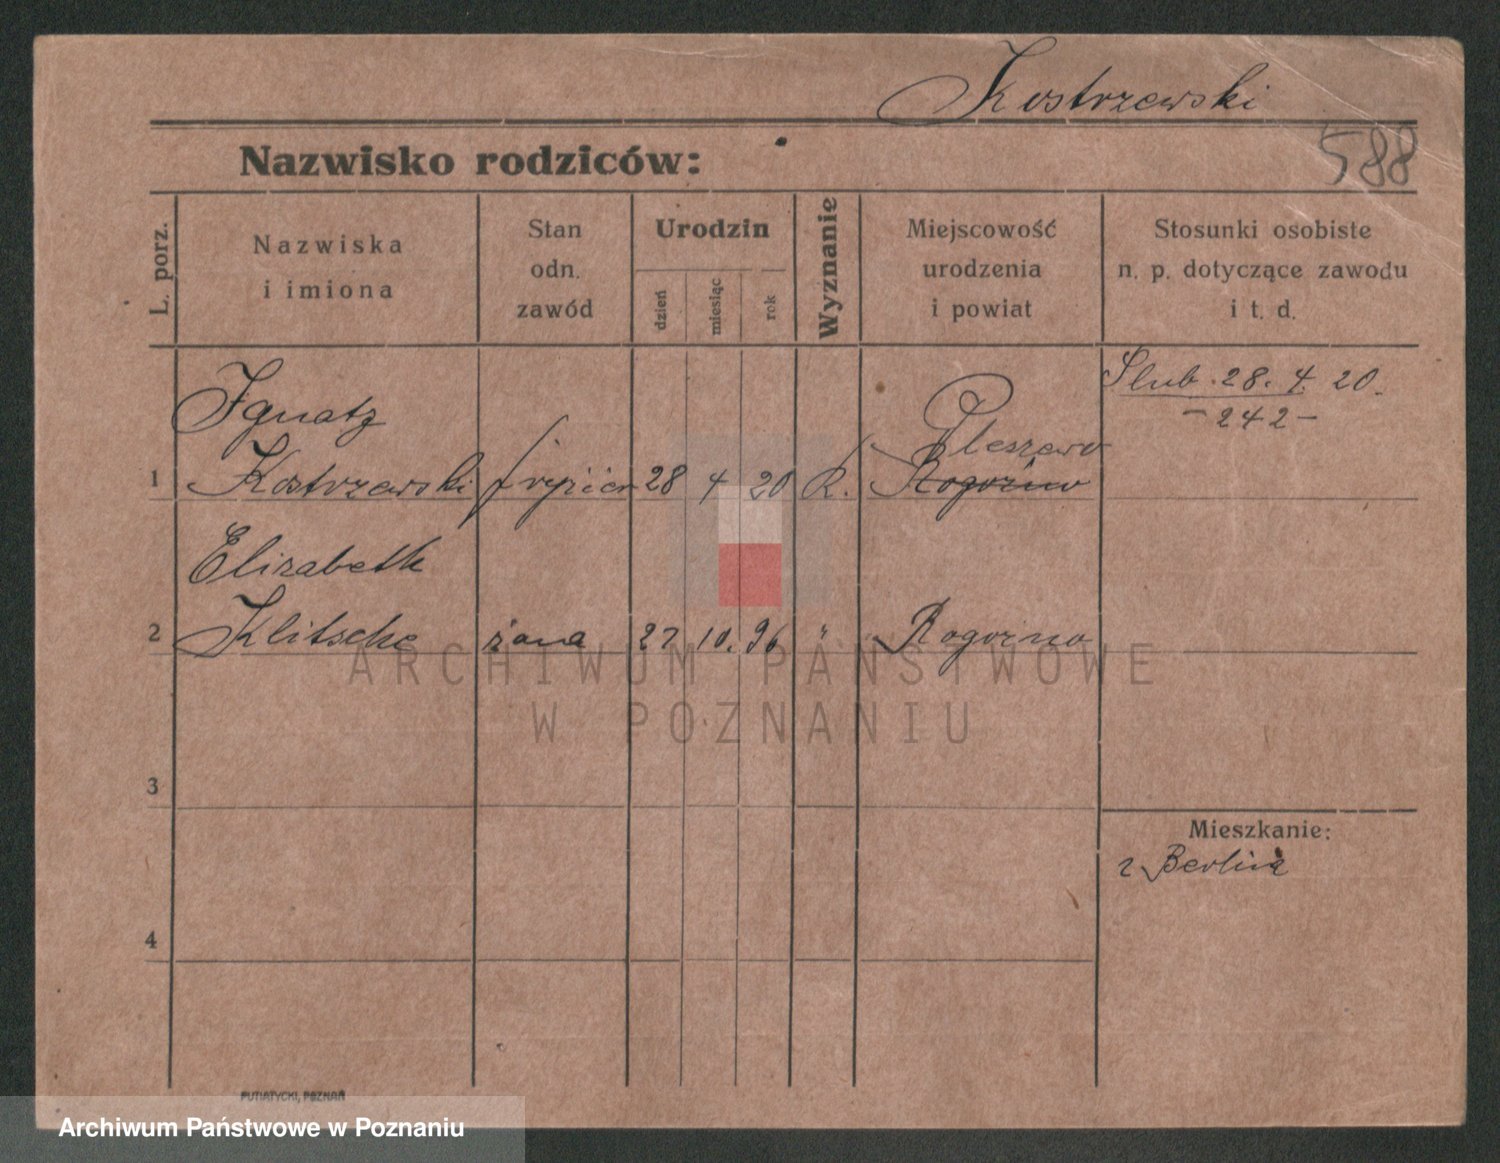 Kostrzewski
588
Nazwisko rodziców:
L. porz.
Nazwiska
i imiona
Stan
odn.
zawód
Urodzin
dzień
miesiąc
rok
Wyznanie
Miejscowość
urodzenia
i powiat
Stosunki osobiste
n. p. dotyczące zawodu
i t. d.
Ignatz
Pleszewo
Slub 28. 4. 20.
-242-
1 Kostrzewski fryzier 28 4 20 R. Rogozino
Elizabeth
2 Klitsche żona 27 10. 96 " Rogozno
ARCHIWUM PAŃSTWOWE
W POZNANIU
3
Mieszkanie:
z Berlina
4
PUTIATYCKI, POZNAŃ
Archiwum Państwowe w Poznaniu